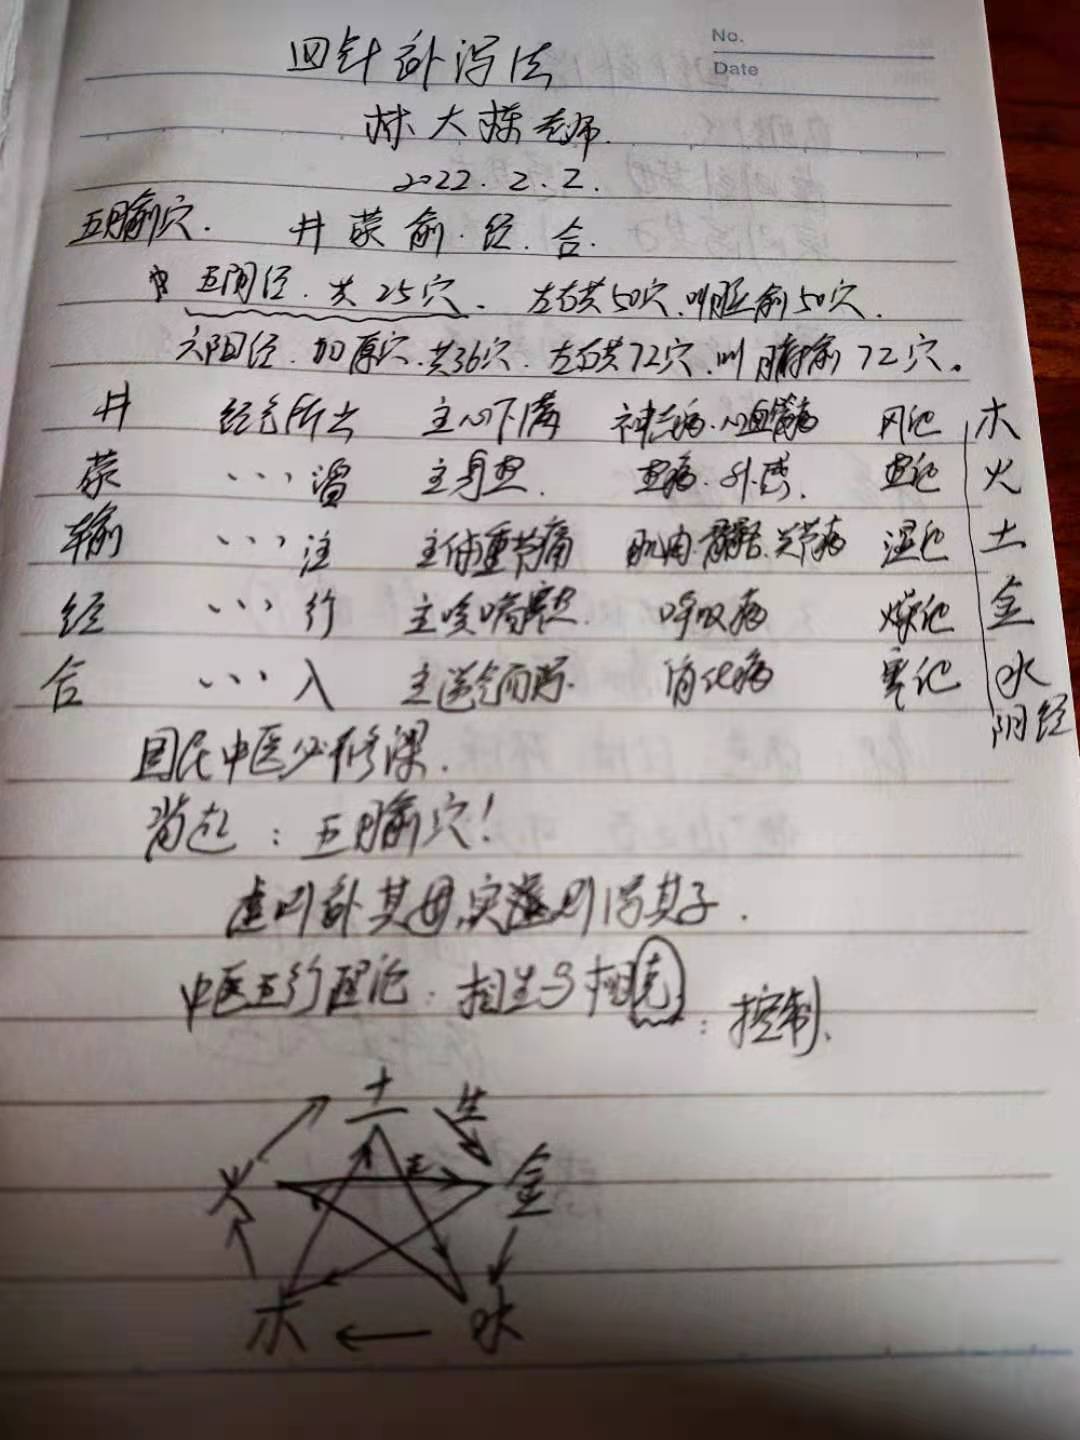 No.
Date
四针补泻法
林大栋老师.
2022.2.2.
五腧穴. 井荥俞.经.合.
五阴经.共25穴. 左右共50穴.叫脏俞50穴.
六阳经.加原穴.共36穴.左右共72穴.叫腑俞72穴。
井 经气所出 主心下满 神志病.心血管病 风化 木
荥 ... 溜 主身热. 热病.外感. 热化 火
输 ... 注 主体重节痛 肌肉.骨骼.关节病 湿化 土
经 ... 行 主咳喘寒热. 呼吸病 燥化 金
合 ... 入 主逆气而泻. 消化病 寒化 水
阴经
国民中医必修课.
背起:五腧穴!
虚则补其母,实则泻其子.
中医五行理论:相生与相克:控制、
土 生
火 克 金
木 水